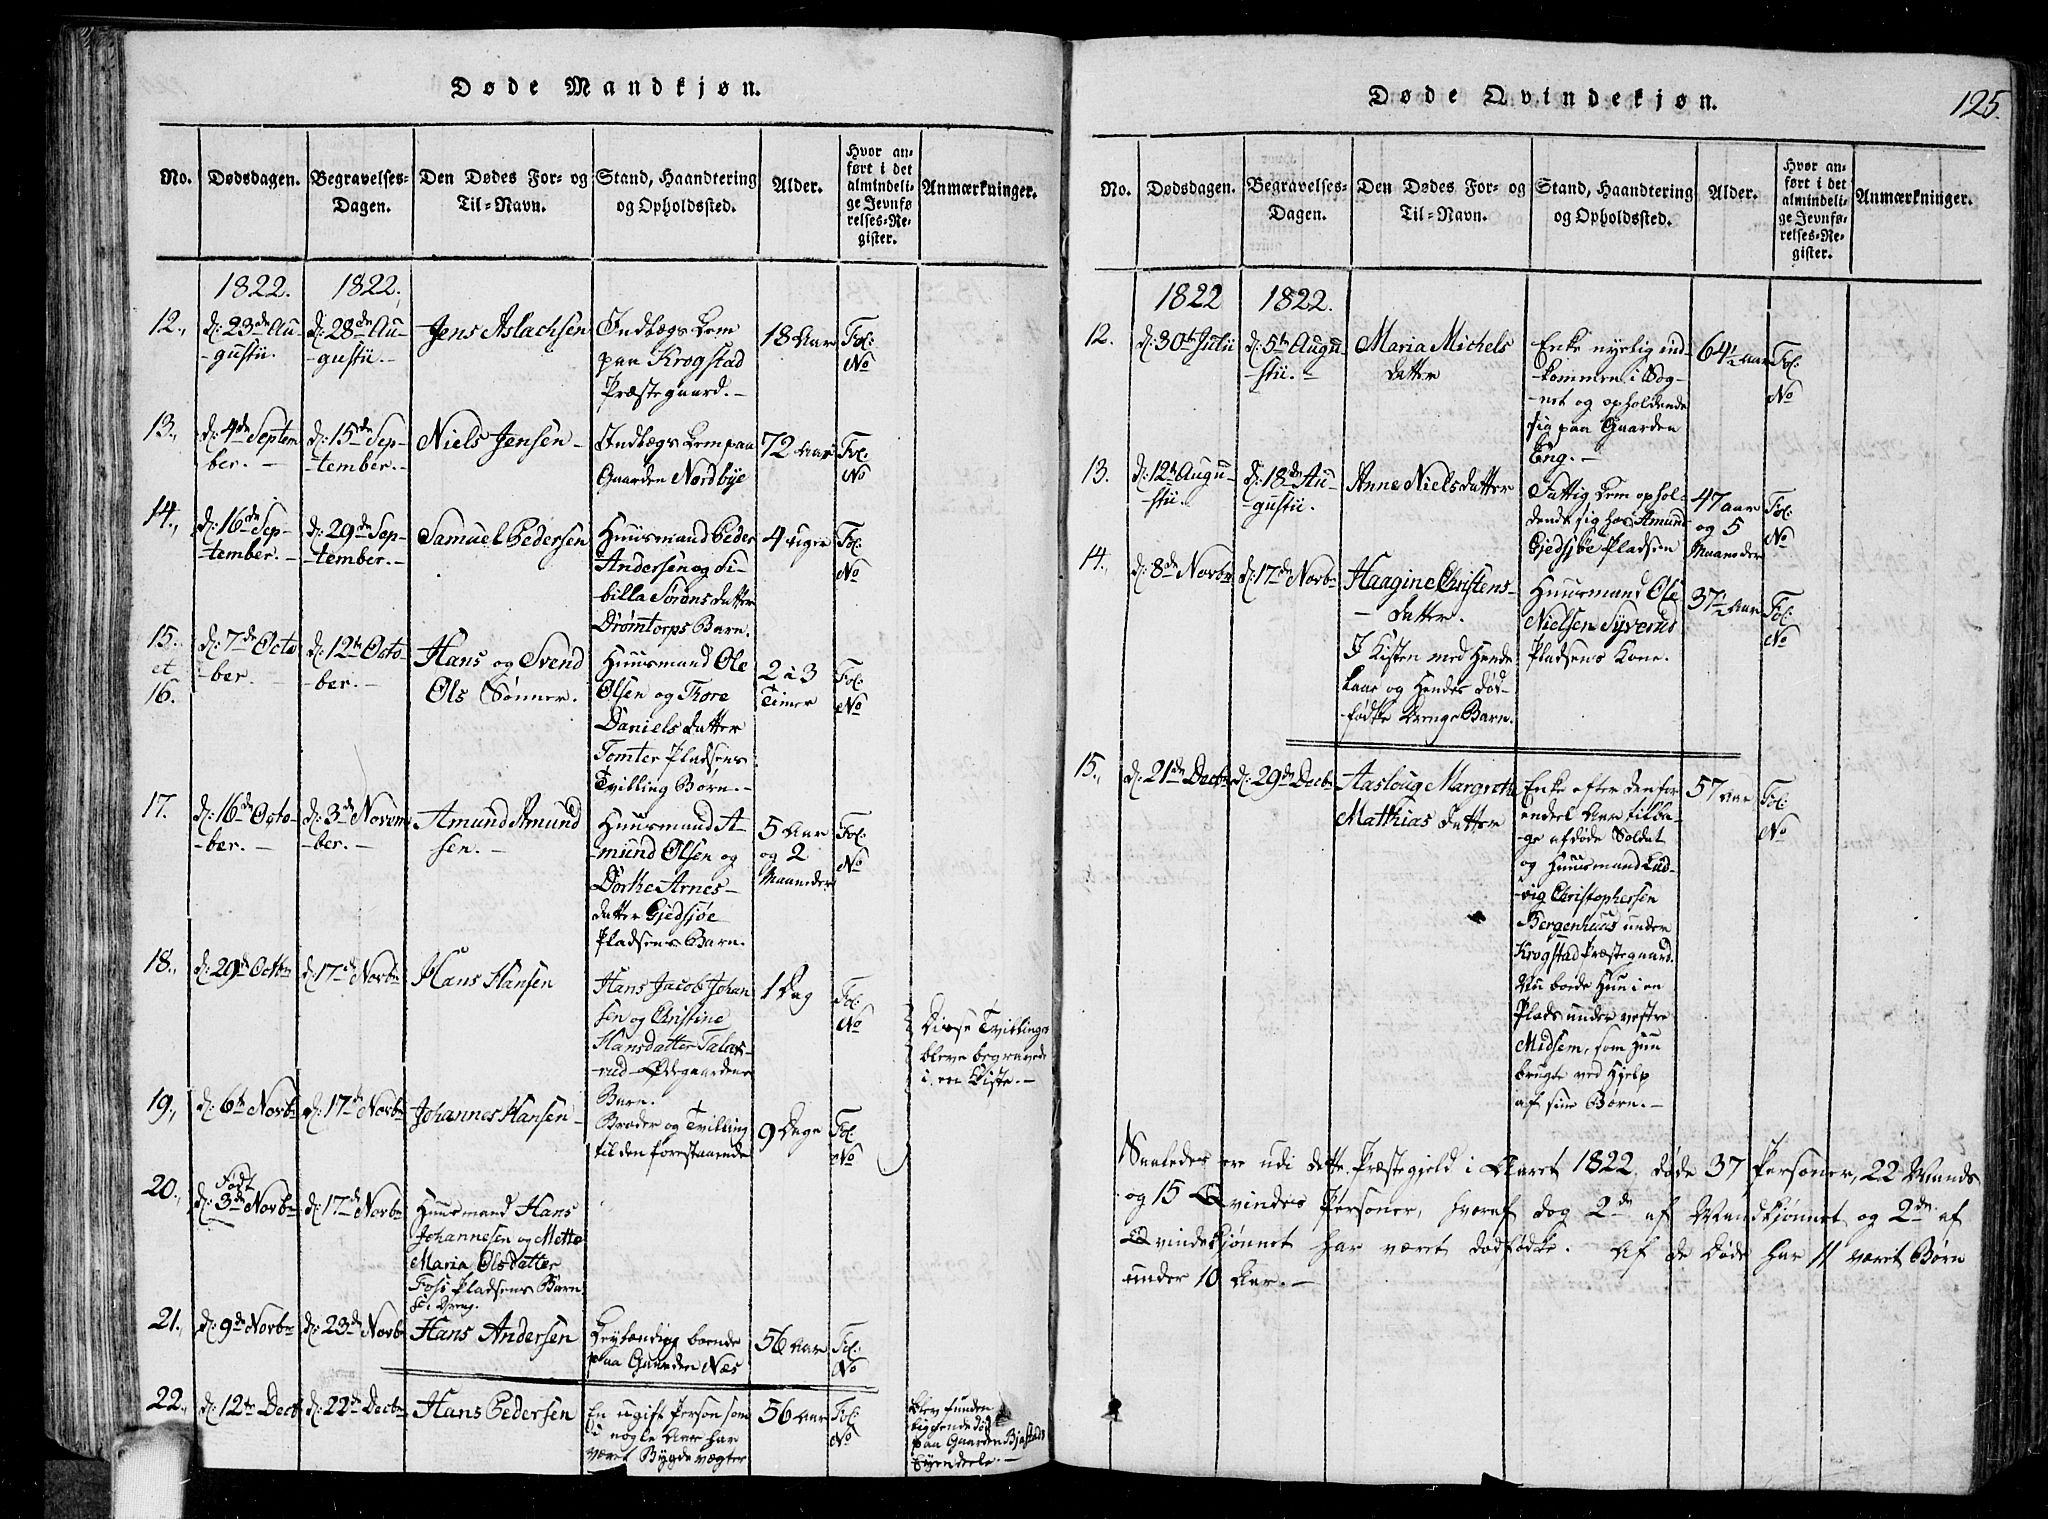 Døde Mandkjøn.
No.
Dødsdagen.
Begravelses-
Dagen.
Den Dødes For- og
Til-Navn.
Stand, Haandtering
og Opholdssted.
Alder.
Hvor an-
ført i det
almindeli-
ge Jevnfø-
relses-Re-
gister.
Anmærkninger.
1822.
1822.
12.,
d: 23de Au-
-gustii.
d: 28de Au-
gustii.-
Jens Aslachsen
Indlægs Lem
paa Krogstad
Præstegaard.-
18 Aar
Fol:
No
13.,
d: 4de Septem
ber.-
d: 15de Sep-
-tember.-
Niels Jensen-
Indlægs Lem paa
Gaarden Nordbye
72 Aar
Fol:
No
14.,
d: 16de Sep-
-tember.-
d: 29de Sep-
-tember.-
Samuel Pedersen
Huusmand Peder
Andersen og Si-
-billa Sørens datter
Drømtorps Barn.
4 uger
Fol:
No
15.
et
16.
d: 7de Octo
-ber.-
d: 12te Octo-
-ber.-
Hans og Svend
Ols Sønner.
Huusmand Ole
Olsen og Thore
Daniels datter
Tomter Pladsens
Tvilling Børn.-
2 à 3
Timer
Fol:
No
17.
d: 16de Octo-
-ber.-
d: 3de Novem
-ber.-
Amund Amund
sen.-
Huusmand A-
-mund Olsen og
Dorthe Arnes-
datter Gjedsjøe
Pladsens Barn.
5 Aar
og 2
Maaneder
Fol:
No
18.,
d: 29de Octbr
d: 17de Novbr
Hans Hansen
Hans Jacob Johan
sen og Christine
Hansdatter Talas-
-rud-Ødegaardene
Barn.
1 Dag
Fol:
No
Disse Tvillinge
bleve begravede
i en Kiste.-
19.,
d: 6te Novbr
d: 17de Novbr
Johannes Hansen-
Broder og Tvilling
til den forestaaende
9 Dage
Fol:
No
20.,
Født
d: 3de Novbr
d: 17de Novbr
Huusmand Hans
Johannesen og Mette
Maria Olsdatter
Foss Pladsens Barn
s: Dreng.
21.,
d: 9de Novbr
d: 23de Novbr
Hans Andersen
Leylænding boende
paa Gaarden Næs
56 Aar
Fol:
No
22.,
d: 12te Decbr
d: 22de Decbr
Hans Pedersen
En ugift Person som
i nogle Aar har
været Bygdevægter
56 Aar
Fol:
No
Blev funden
liggende død
paa Gaarden Bjastads
Eyendele.-
Døde Qvindekjøn.
125.
No.
Dødsdagen.
Begravelses-
Dagen.
Den Dødes For- og
Til-Navn.
Stand, Haandtering
og Opholdssted.
Alder.
Hvor an-
ført i det
almindeli-
ge Jevnfø-
relses-Re-
gister.
Anmærkninger.
1822
1822.
12.
d: 30te Julii
d: 5te Augu-
stii.-
Maria Michels
datter
Enke nyelig ind-
-kommen i Sog-
-net og opholdende
sig paa Gaarden
Eng.-
64½ Aar
Fol:
No
13.
d: 12te Augu-
stii.
d: 18de Au-
gustii.
Anne Niels datter
Fattig Lem ophol-
dende sig hos Amund
Gjedsjøe Pladsen
47 Aar
og 5
Maaneder
Fol:
No
14.,
d: 8de Novbr
d: 17de Novbr
Haagine Christens-
-datter.
I Kisten med Hende
laae og Hendes død-
-fødte Drenge Barn.
Huusmand Ole
Nielsen Syverud
Pladsens Kone.
37½ Aar
Fol:
No
15.,
d: 21de Decbr
d: 29de Decbr
Aasloug Margrethe
Matthias datter
Enke efter den for
endeel Aar tilba-
ge afdøde Soldat
og Huusmand Lud-
vig Christophersen
Bergenhuus under
Krogstad Præstegaard.
Nu boede Hun i en
Plads under vestre
Midsem, som Hun
brugte ved Hjelp
af sine Børn.-
57 Aar
Fol:
No
Saaledes ere udi dette Præstegjeld i Aaret 1822, døde 37 Personer, 22 Mands
og 15 Qvindes Personer, hvoraf dog 2de af Mandkjønnet og 2de af
Qvindekjønnet har været dødfødte. Af de Døde har 11 været Børn
under 10 Aar.-